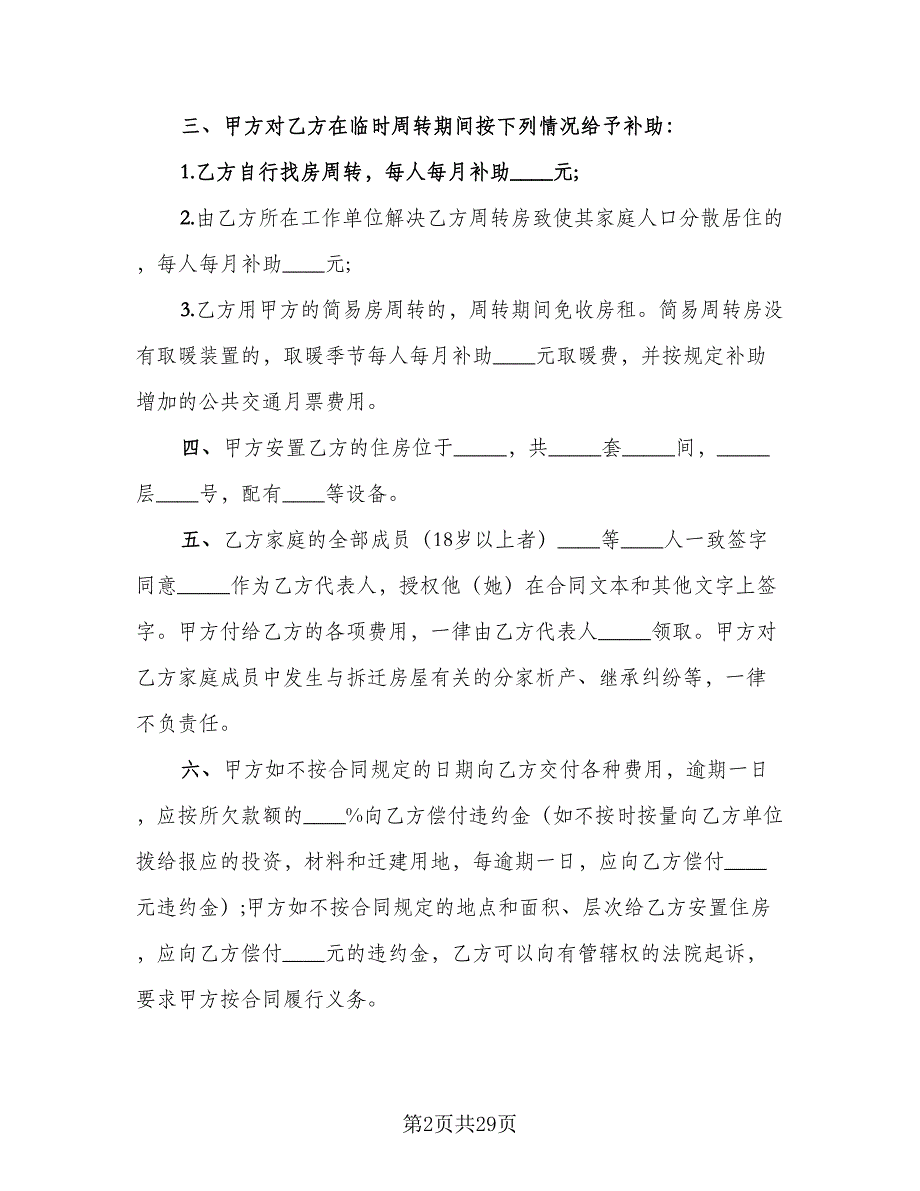 三、甲方对乙方在临时周转期间按下列情况给予补助：
1.乙方自行找房周转，每人每月补助____元;
2.由乙方所在工作单位解决乙方周转房致使其家庭人口分散居住的
，每人每月补助____元;
3.乙方用甲方的简易房周转的，周转期间免收房租。简易周转房没
有取暖装置的，取暖季节每人每月补助____元取暖费，并按规定补助
增加的公共交通月票费用。
四、甲方安置乙方的住房位于_____，共_____套_____间，_____
层____号，配有____等设备。
五、乙方家庭的全部成员（18岁以上者）____等____人一致签字
同意_____作为乙方代表人，授权他（她）在合同文本和其他文字上签
字。甲方付给乙方的各项费用，一律由乙方代表人_____领取。甲方对
乙方家庭成员中发生与拆迁房屋有关的分家析产、继承纠纷等，一律
不负责任。
六、甲方如不按合同规定的日期向乙方交付各种费用，逾期一日
，应按所欠款额的____%向乙方偿付违约金（如不按时按量向乙方单位
拨给报应的投资，材料和迁建用地，每逾期一日，应向乙方偿付____
元违约金）;甲方如不按合同规定的地点和面积、层次给乙方安置住房
，应向乙方偿付____元的违约金，乙方可以向有管辖权的法院起诉，
要求甲方按合同履行义务。
第2页共29页